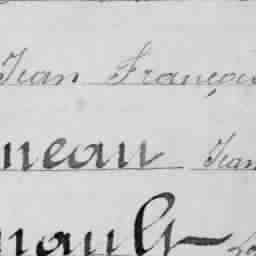 Jean François
neau Jean
nault